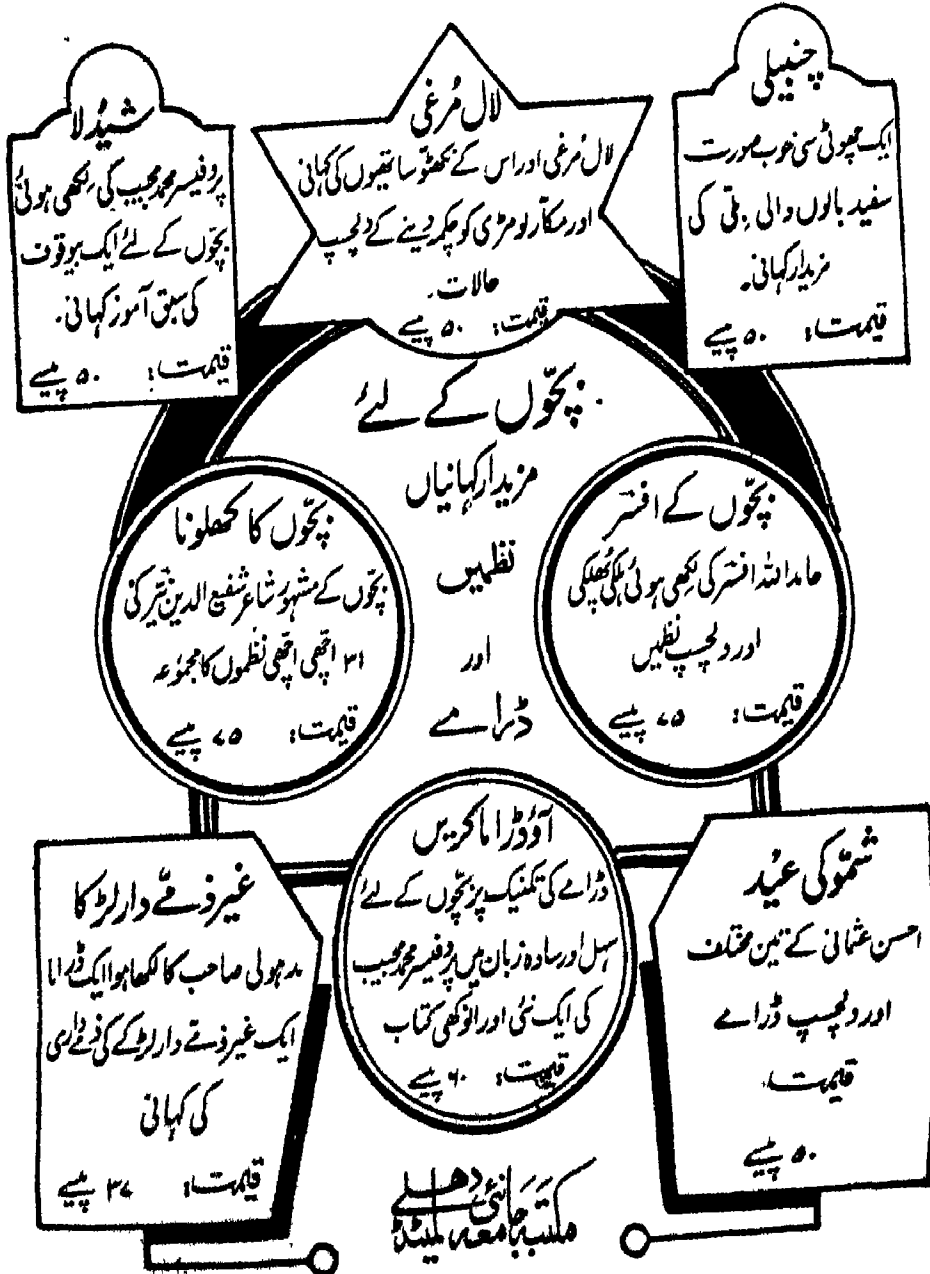 چنبیلی
ایک چھوٹی سی خوب صورت
سفید بالوں والی بلی کی
مزیدار کہانی۔
قیمت: ۵۰ پیسے
لال مُرغی
لال مُرغی اور اس کے نکھٹو ساتھیوں کی کہانی
اور مکّار لومڑی کو چکر دینے کے دلچسپ
حالات۔
قیمت: ۵۰ پیسے
شیڈلا
پروفیسر محمد مجیب کی لکھی ہوئی
بچّوں کے لئے ایک بیوقوف
کی سبق آموز کہانی۔
قیمت: ۵۰ پیسے
بچّوں کے لئے
مزیدار کہانیاں
نظمیں
اور
ڈرامے
بچّوں کے افسر
حامد اللہ افسر کی لکھی ہوئی ہلکی پھلکی
اور دلچسپ نظمیں
قیمت: ۷۵ پیسے
بچّوں کا کھلونا
بچّوں کے مشہور شاعر شفیع الدین نیّر کی
۳۱ اچّھی اچّھی نظموں کا مجموعہ
قیمت: ۷۵ پیسے
شمّو کی عید
احسن عثمانی کے تین مختلف
اور دلچسپ ڈرامے
قیمت:
۵۰ پیسے
آؤ ڈراما کریں
ڈرامے کی تکنیک پر بچّوں کے لئے
سہل اور سادہ زبان میں پروفیسر محمد مجیب
کی ایک نئی اور انوکھی کتاب
قیمت: ۶۰ پیسے
غیر ذمّے دار لڑکا
مدہولی صاحب کا لکھا ہوا ایک ڈراما
ایک غیر ذمّے دار لڑکے کی ذمّے داری
کی کہانی
قیمت: ۳۷ پیسے
مکتبہ جامعہ لمیٹڈ نئی دھلی